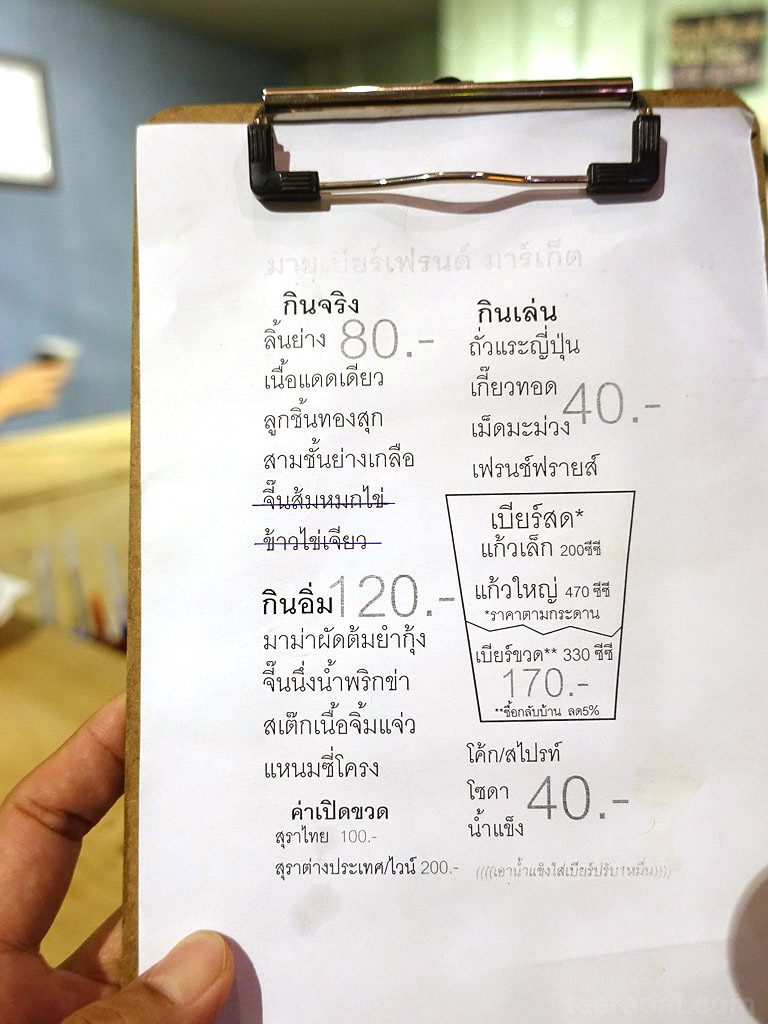 มายุเบียร์เฟรนด์ มาร์เก็ต
กินจริง
ลิ้นย่าง 80.-
เนื้อแดดเดียว
ลูกชิ้นทองสุก
สามชั้นย่างเกลือ
จิ๊นส้มหมกไข่
ข้าวไข่เจียว
กินอิ่ม 120.-
มาม่าผัดต้มยำกุ้ง
จิ๊นนึ่งน้ำพริกข่า
สเต๊กเนื้อจิ้มแจ่ว
แหนมซี่โครง
ค่าเปิดขวด
สุราไทย 100.-
สุราต่างประเทศ/ไวน์ 200.-
กินเล่น
ถั่วแระญี่ปุ่น
เกี๊ยวทอด 40.-
เม็ดมะม่วง
เฟรนช์ฟรายส์
เบียร์สด*
แก้วเล็ก 200ซีซี
แก้วใหญ่ 470 ซีซี
*ราคาตามกระดาน
เบียร์ขวด** 330 ซีซี
170.-
**ซื้อกลับบ้าน ลด5%
โค้ก/สไปรท์
โซดา 40.-
น้ำแข็ง
((((เอาน้ำแข็งใส่เบียร์ปรับ1หมื่น))))
teerapat.com